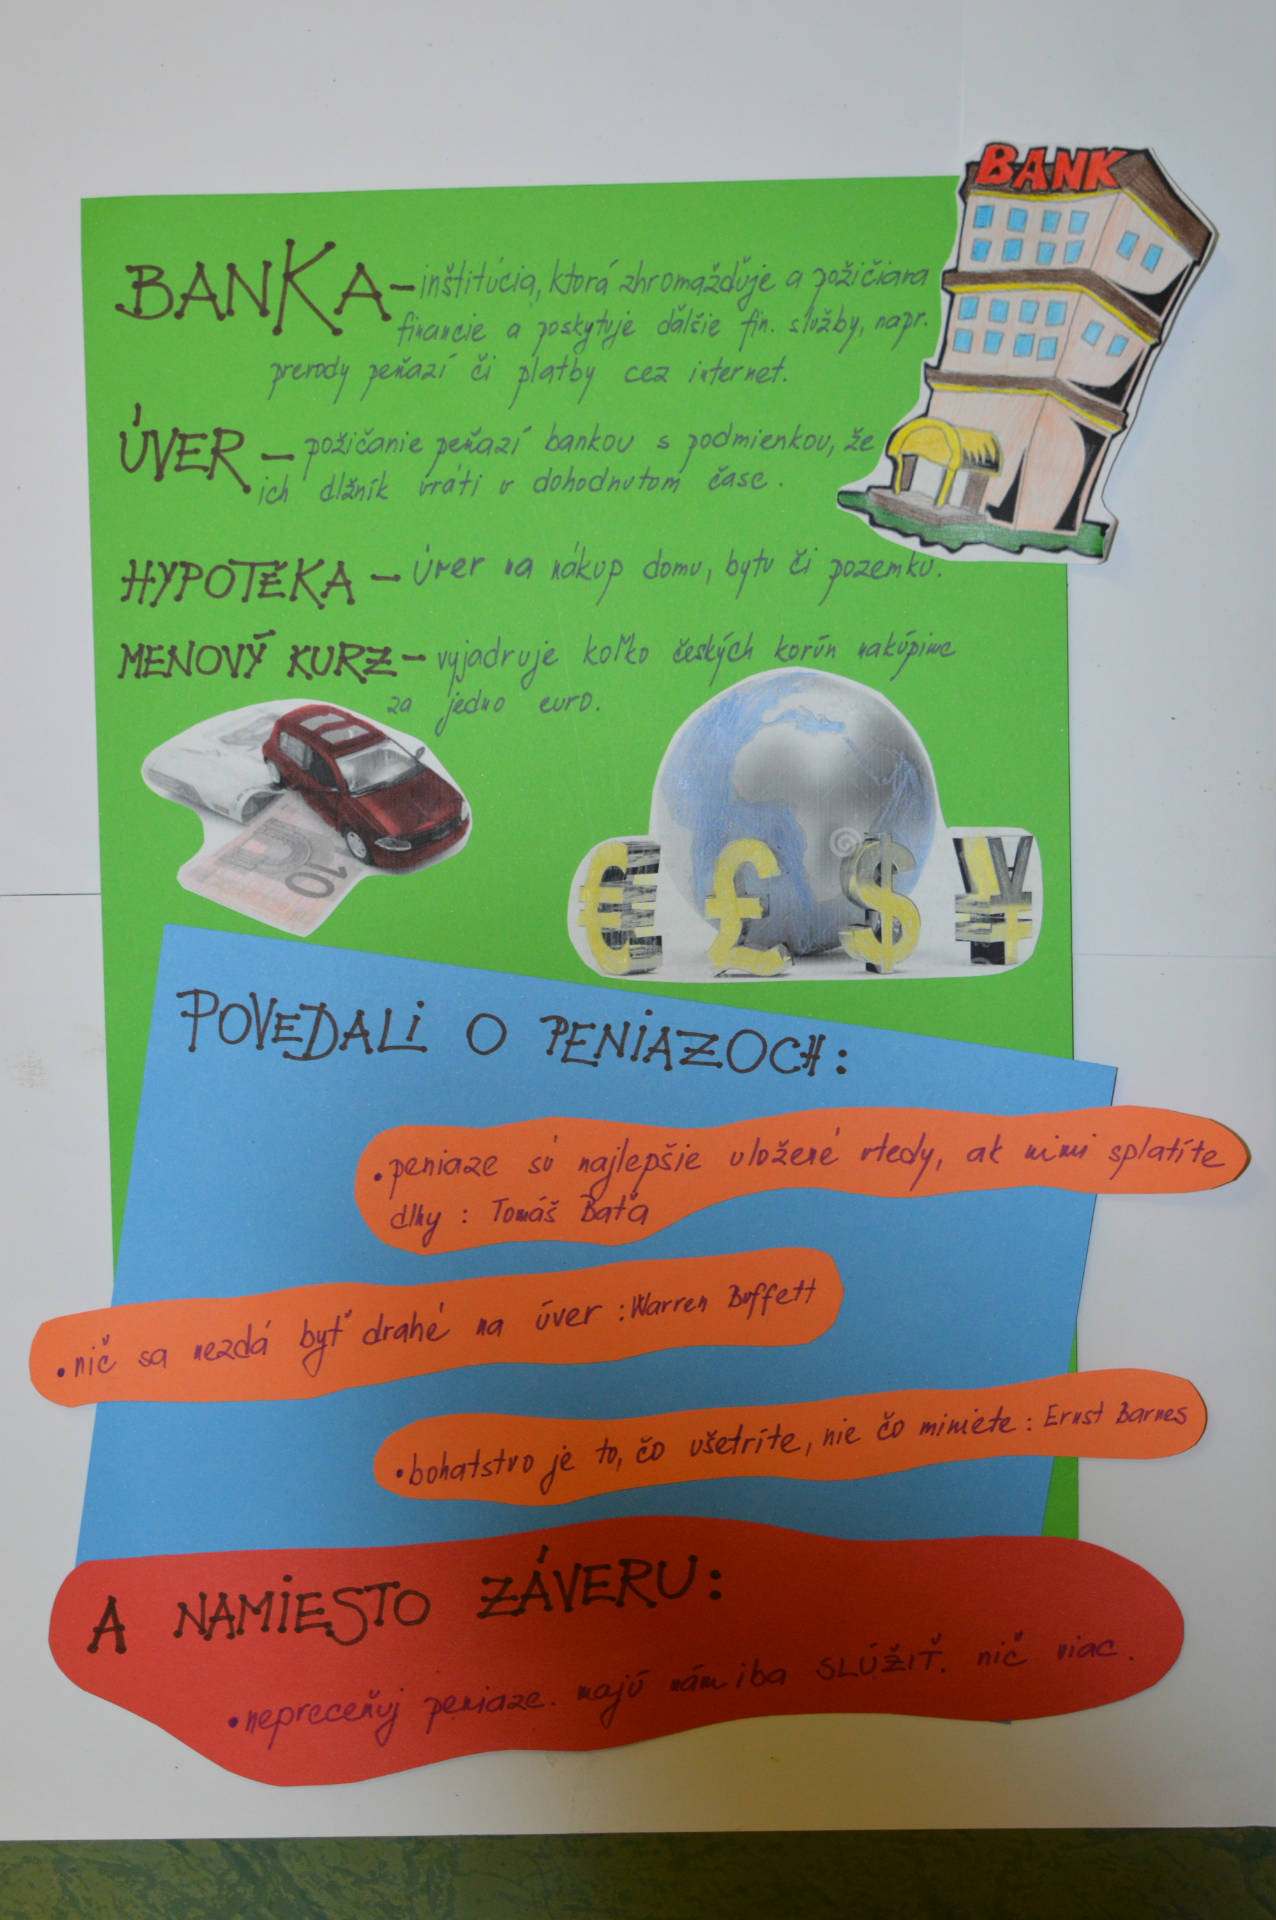 BANK
BANKA – inštitúcia, ktorá zhromažďuje a požičiava
financie a poskytuje ďalšie fin. služby, napr.
prevody peňazí či platby cez internet.
ÚVER – požičanie peňazí bankou s podmienkou, že
ich dlžník vráti v dohodnutom čase.
HYPOTÉKA – úver na nákup domu, bytu či pozemku.
MENOVÝ KURZ – vyjadruje koľko českých korún nakúpime
za jedno euro.
10
€ £ $ ¥
POVEDALI O PENIAZOCH:
• peniaze sú najlepšie uložené vtedy, ak nimi splatíte
dlhy : Tomáš Baťa
• nič sa nezdá byť drahé na úver : Warren Buffett
• bohatstvo je to, čo ušetríte, nie čo miniete : Ernst Barnes
A NAMIESTO ZÁVERU:
• nepreceňuj peniaze. majú nám iba SLÚŽIŤ. nič viac.